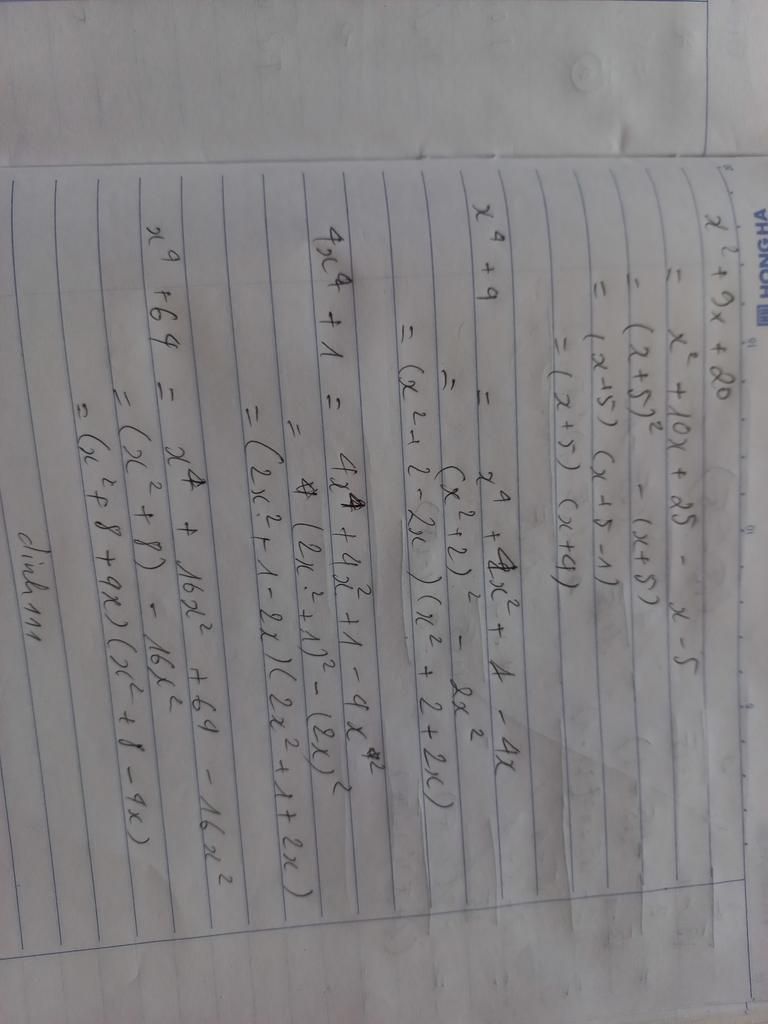 HONGHA
x² + 9x + 20
= x² + 10x + 25 - x - 5
= (x+5)² - (x+5)
= (x+5) (x+5-1)
= (x+5) (x+4)
x⁴ + 4 = x⁴ + 4x² + 4 - 4x
= (x²+2)² - 2x²
= (x² + 2 - 2x) (x² + 2 + 2x)
4x⁴ + 1 = 4x⁴ + 4x² + 1 - 4x²
= (2x² + 1)² - (2x)²
= (2x² + 1 - 2x) (2x² + 1 + 2x)
x⁴ + 64 = x⁴ + 16x² + 64 - 16x²
= (x² + 8) - 16x²
= (x² + 8 + 4x) (x² + 8 - 4x)
dinh111